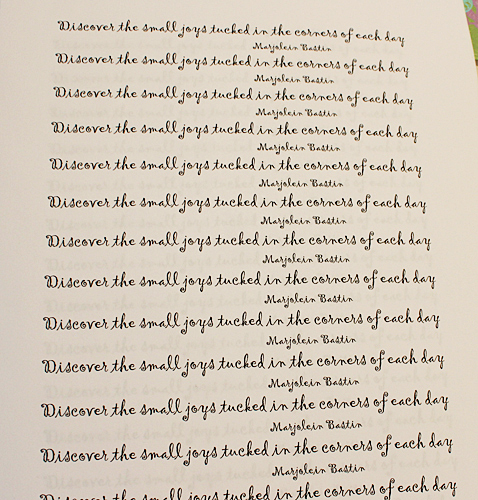 Discover the small joys tucked in the corners of each day
Marjolein Bastin
Discover the small joys tucked in the corners of each day
Marjolein Bastin
Discover the small joys tucked in the corners of each day
Marjolein Bastin
Discover the small joys tucked in the corners of each day
Marjolein Bastin
Discover the small joys tucked in the corners of each day
Marjolein Bastin
Discover the small joys tucked in the corners of each day
Marjolein Bastin
Discover the small joys tucked in the corners of each day
Marjolein Bastin
Discover the small joys tucked in the corners of each day
Marjolein Bastin
Discover the small joys tucked in the corners of each day
Marjolein Bastin
Discover the small joys tucked in the corners of each day
Marjolein Bastin
Discover the small joys tucked in the corners of each day
Marjolein Bastin
Discover the small joys tucked in the corners of each day
Marjolein Bastin
Discover the small joys tucked in the corners of each day